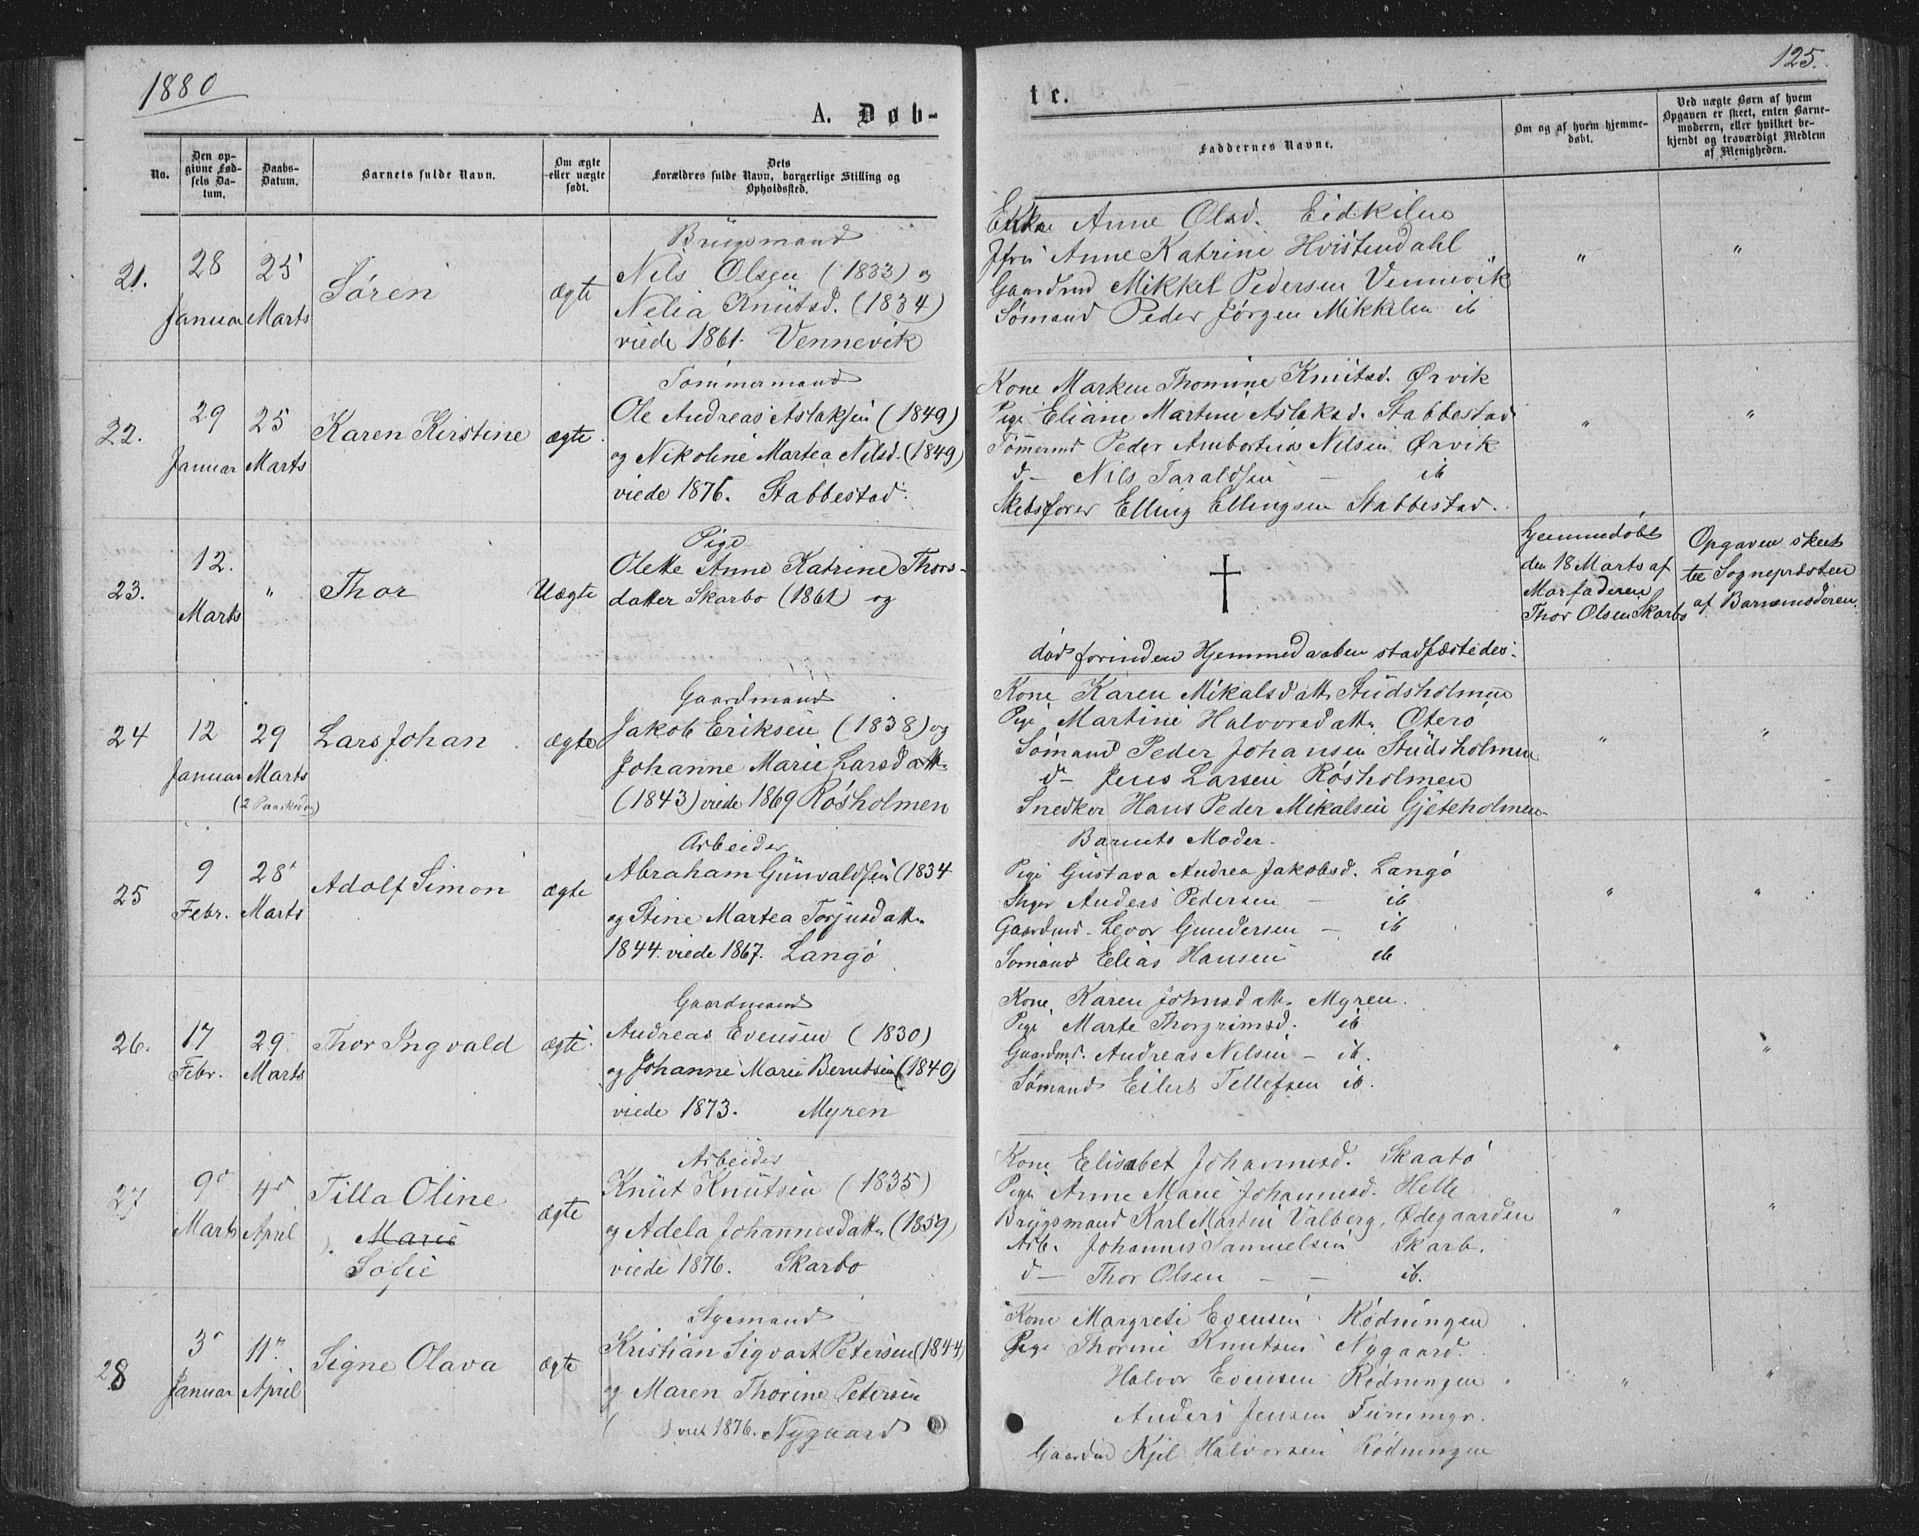 1880
125.
A. Døb-
te.
No.
Den op-
givne Fød-
sels Da-
tum.
Daabs-
Datum.
Barnets fulde Navn.
Om ægte
eller uægte
født.
Dets
Forældres fulde Navn, borgerlige Stilling og
Opholdssted.
Faddernes Navne.
Om og af hvem hjemme-
døbt.
Ved uægte Børn af hvem
Opgaven er skeet, enten Barne-
moderen, eller hvilket be-
kjendt og troværdigt Medlem
af Menigheden.
21.
28
Januar
25
Marts
Søren
ægte
Brugsmand
Nils Olsen (1833) og
Nelia Knutsd. (1834)
viede 1861. Vennevik
Enke Anne Olsd. Eidkilen
Jfru Anne Katrine Hvistendahl
Gaardmd Mikkel Pedersen Vennevik
Sømand Peder Jørgen Mikkelsen ib
"
"
22.
29
Januar
25
Marts
Karen Kirstine
ægte
Tømmermand
Ole Andreas Aslaksen (1849)
og Nikoline Martea Nilsd. (1849)
viede 1876. Stabbestad.
Kone Marken Thomine Knutsd. Ørvik
Pige Eliane Martine Aslaksd. Stabbestad
Tømmermd Peder Ambortius Nilsen Ørvik
d— Nils Taraldsen — ib
Skibsfører Elling Ellingsen Stabbestad.
"
"
23.
12.
Marts
"
Thor
Uægte
Pige
Olette Anne Katrine Thors-
datter Skarbo (1861) og
†
død forinden Hjemmedaaben stadfæstedes.
Hjemmedøbt
den 18 Marts af
Morfaderen
Thor Olsen Skarbo
Opgaven skeet
til Sognepræsten
af Barnemoderen.
24
12
Januar
29
Marts
(2 Paaskedag)
Lars Johan
ægte
Gaardmand
Jakob Eriksen (1838) og
Johanne Marie Larsdatt.
(1843) viede 1869 Røsholmen
Kone Karen Mikalsdatt. Studsholmen
Pige Martine Halvorsdatt. Oterø
Sømand Peder Johansen Studsholmen
d— Jens Larsen Røsholmen
Snedker Hans Peder Mikalsen Gjeteholmen
"
"
25
9
Febr.
28
Marts
Adolf Simon
ægte
Arbeider
Abraham Gunvaldsen (1834
og Stine Martea Torjusdatt.
1844. viede 1867. Langø
Barnets Moder.
Pige Gustava Andrea Jakobsd. Langø
Anders Pedersen — ib
Gaardmd. Levor Gundersen — ib
Sømand Elias Hansen ib
"
"
26.
17
Febr.
29
Marts
Thor Ingvald
ægte
Gaardmand
Andreas Evensen (1830)
og Johanne Marie Berntsen (1840)
viede 1873. Myren
Kone Karen Johnsdatt. Myren.
Pige Marte Thorgrimsd. ib
Gaardmd. Andreas Nilsen — ib.
Sømand Eilert Tellefsen ib.
"
"
27
9
Marts
4
April
Tilla Oline
Marie
Sofie
ægte
Arbeider
Knut Knutsen (1835)
og Adela Johannesdatt. (1859)
viede 1876. Skarbo
Kone Elisabet Johannesd. Skaatø
Pige Anne Marie Johannesd. Helle
Brugsmand Karl Martin Valberg, Ødegaarden
Arb. Johannes Samuelsen Skarb.
d— Thor Olsen — — ib.
"
"
28
3
Januar
11
April
Signe Olava
ægte
Styrmand
Kristian Sigvart Petersen (1844)
og Maren Thorine Petersen
( ) viet 1876. Nygaard
Kone Margrete Evensen Rødningen
Pige Thorine Knutsen Nygaard.
Halvor Evensen Rødningen
Anders Jensen
Gaardmd Kjel Halvorsen Rødningen
"
"